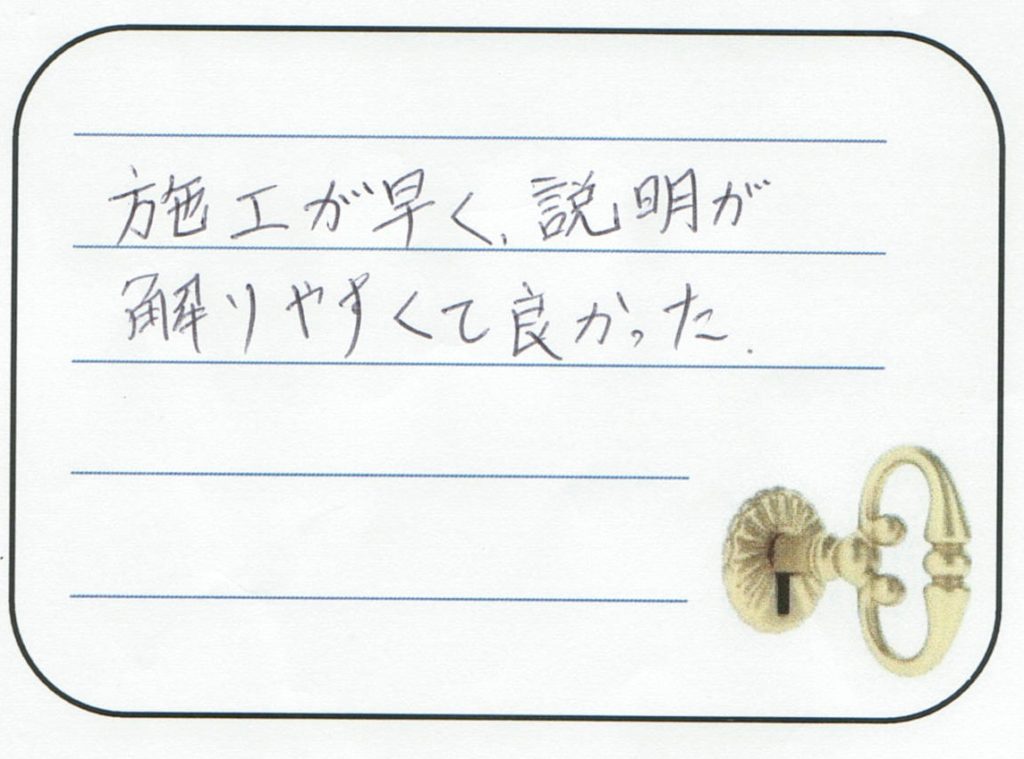 施工が早く、説明が
解りやすくて良かった.